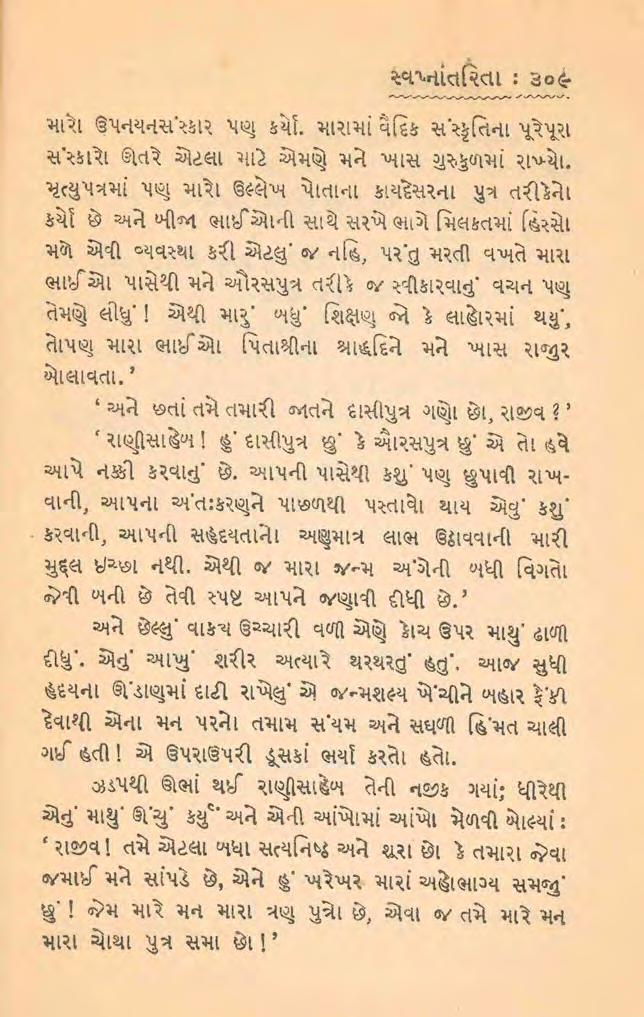 સ્વપ્નાંતરિતા : ૩૦૯
મારો ઉપનયનસંસ્કાર પણ કર્યો. મારામાં વૈદિક સંસ્કૃતિના પૂરેપૂરા
સંસ્કારો ઊતરે એટલા માટે એમણે મને ખાસ ગુરુકુળમાં રાખ્યો.
મૃત્યુપત્રમાં પણ મારો ઉલ્લેખ પોતાના કાયદેસરના પુત્ર તરીકેનો
કર્યો છે અને બીજા ભાઈઓની સાથે સરખે ભાગે મિલકતમાં હિસ્સો
મળે એવી વ્યવસ્થા કરી એટલું જ નહિ, પરંતુ મરતી વખતે મારા
ભાઈઓ પાસેથી મને ઔરસપુત્ર તરીકે જ સ્વીકારવાનું વચન પણ
તેમણે લીધું! એથી મારું બધું શિક્ષણ જો કે લાહોરમાં થયું,
તોપણ મારા ભાઈઓ પિતાશ્રીના શ્રાદ્ધદિને મને ખાસ રાજુર
બોલાવતા.’
‘અને છતાં તમે તમારી જાતને દાસીપુત્ર ગણો છો, રાજીવ?’
‘રાણીસાહેબ! હું દાસીપુત્ર છું કે ઔરસપુત્ર છું એ તો હવે
આપે નક્કી કરવાનું છે. આપની પાસેથી કશું પણ છુપાવી રાખ-
વાની, આપના અંતઃકરણને પાછળથી પસ્તાવો થાય એવું કશું
કરવાની, આપની સહૃદયતાનો અણુમાત્ર લાભ ઉઠાવવાની મારી
મુદ્દલ ઇચ્છા નથી. એથી જ મારા જન્મ અંગેની બધી વિગતો
જેવી બની છે તેવી સ્પષ્ટ આપને જણાવી દીધી છે.’
અને છેલ્લું વાક્ય ઉચ્ચારી વળી એણે કોચ ઉપર માથું ઢાળી
દીધું. એનું આખું શરીર અત્યારે થરથરતું હતું. આજ સુધી
હૃદયના ઊંડાણમાં દાટી રાખેલું એ જન્મશલ્ય ખેંચીને બહાર ફેંકી
દેવાથી એના મન પરનો તમામ સંયમ અને સઘળી હિંમત ચાલી
ગઈ હતી! એ ઉપરાઉપરી ડૂસકાં ભર્યા કરતો હતો.
ઝડપથી ઊભાં થઈ રાણીસાહેબ તેની નજીક ગયાં; ધીરેથી
એનું માથું ઊંચું કર્યું અને એની આંખોમાં આંખો મેળવી બોલ્યાં :
‘રાજીવ! તમે એટલા બધા સત્યનિષ્ઠ અને શૂરા છો કે તમારા જેવા
જમાઈ મને સાંપડે છે, એને હું ખરેખર મારાં અહોભાગ્ય સમજું
છું! જેમ મારે મન મારા ત્રણ પુત્રો છે, એવા જ તમે મારે મન
મારા ચોથા પુત્ર સમા છો!’